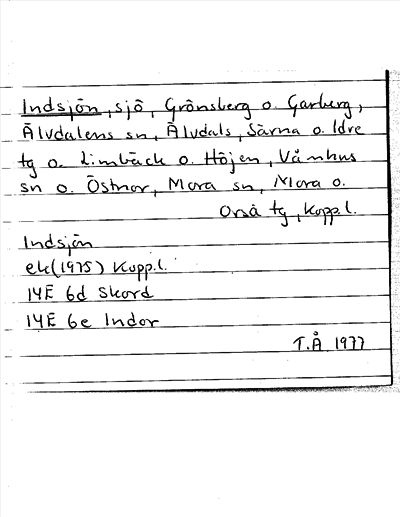 Indsjön, sjö, Grönsberg o. Garberg,
Älvdalens sn, Älvdals, Särna o. Idre
tg o. Limbäck o. Höjen, Våmhus
sn o. Östnor, Mora sn, Mora o.
Orsa tg, Kopp.l.
Indsjön
ek (1975) Kopp.l.
14E 6d Skord
14E 6e Indor
T.Å 1977